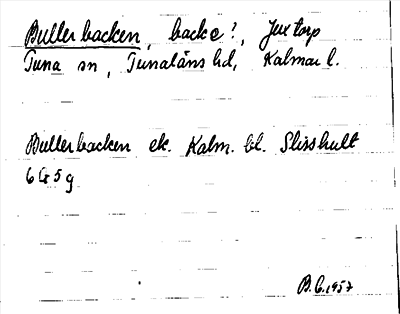 Bullerbacken, backe?, Juxtorp
Tuna sn, Tunaläns hd, Kalmar l.
Bullerbacken ek. Kalm. bl. Slisshult
6 G 5 g
B.C. 1957